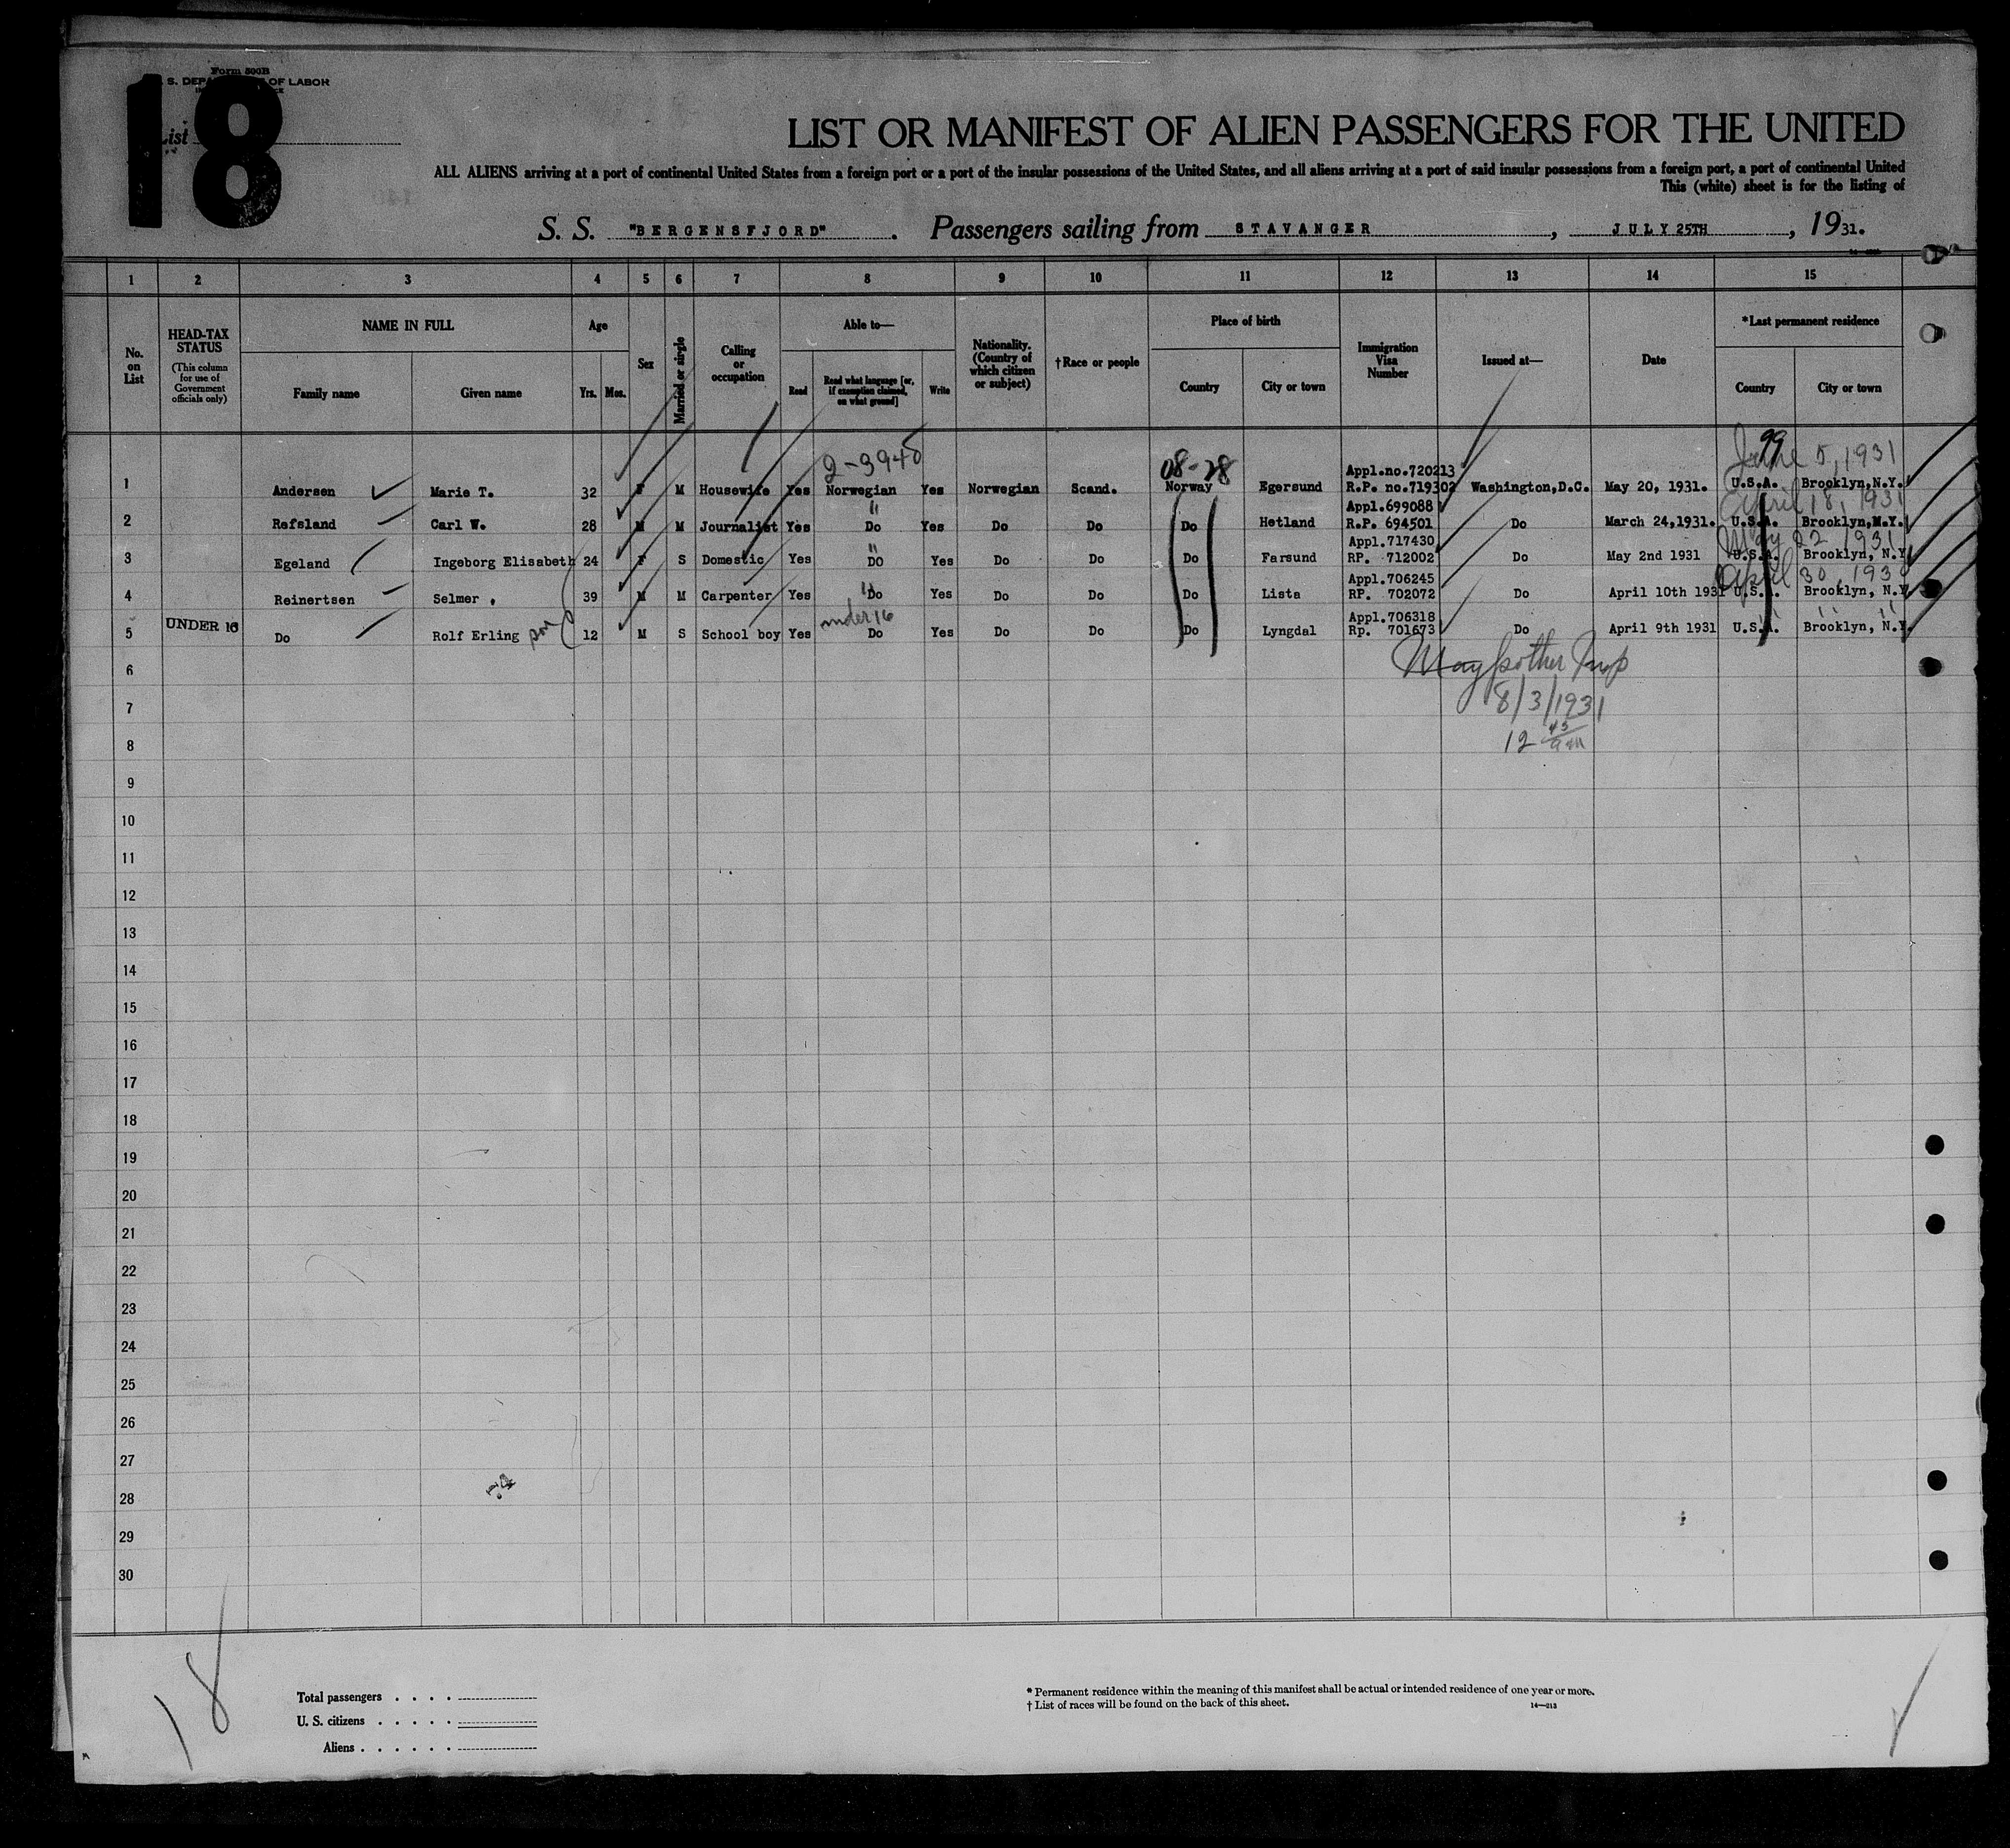 Form 500B
S. DEPA OF LABOR
18
List
LIST OR MANIFEST OF ALIEN PASSENGERS FOR THE UNITED
ALL ALIENS arriving at a port of continental United States from a foreign port or a port of the insular possessions of the United States, and all aliens arriving at a port of said insular possessions from a foreign port, a port of continental United
This (white) sheet is for the listing of
S. S. "BERGENSFJORD" . Passengers sailing from STAVANGER , JULY 25TH , 1931.
1 2 3 4 5 6 7 8 9 10 11 12 13 14 15
No. on List
HEAD-TAX STATUS
(This column for use of Government officials only)
NAME IN FULL
Family name Given name
Age
Yrs. Mos.
Sex
Married or single
Calling or occupation
Able to—
Read Read what language [or, if exemption claimed, on what ground] Write
Nationality. (Country of which citizen or subject)
†Race or people
Place of birth
Country City or town
Immigration Visa Number
Issued at—
Date
*Last permanent residence
Country City or town
2-3940 08-28 99 June 5, 1931
Appl.no.720213
1 Andersen Marie T. 32 F M Housewife Yes Norwegian Yes Norwegian Scand. Norway Egersund R.P. no.719302 Washington,D.C. May 20, 1931. U.S.A. Brooklyn,N.Y.
" Appl.699088 April 18, 1931
2 Refsland Carl W. 28 M M Journalist Yes Do Yes Do Do Do Hetland R.P. 694501 Do March 24,1931. U.S.A. Brooklyn,N.Y.
" Appl.717430 May 22 1931
3 Egeland Ingeborg Elisabeth 24 F S Domestic Yes DO Yes Do Do Do Farsund RP. 712002 Do May 2nd 1931 U.S.A. Brooklyn, N.Y.
" Appl.706245 April 30, 193
4 Reinertsen Selmer . 39 M M Carpenter Yes Do Yes Do Do Do Lista RP. 702072 Do April 10th 1931 U.S.A. Brooklyn, N.Y.
UNDER 16 under 16 Appl.706318 " " "
5 Do Rolf Erling son 12 M S School boy Yes Do Yes Do Do Do Lyngdal Rp. 701673 Do April 9th 1931 U.S.A. Brooklyn, N.Y.
6
7 8/3/1931
8 12 45 am
9
10
11
12
13
14
15
16
17
18
19
20
21
22
23
24
25
26
27
28
29
30
18
Total passengers . . . .
U. S. citizens . . . . .
Aliens . . . . . .
* Permanent residence within the meaning of this manifest shall be actual or intended residence of one year or more.
† List of races will be found on the back of this sheet. 14—213